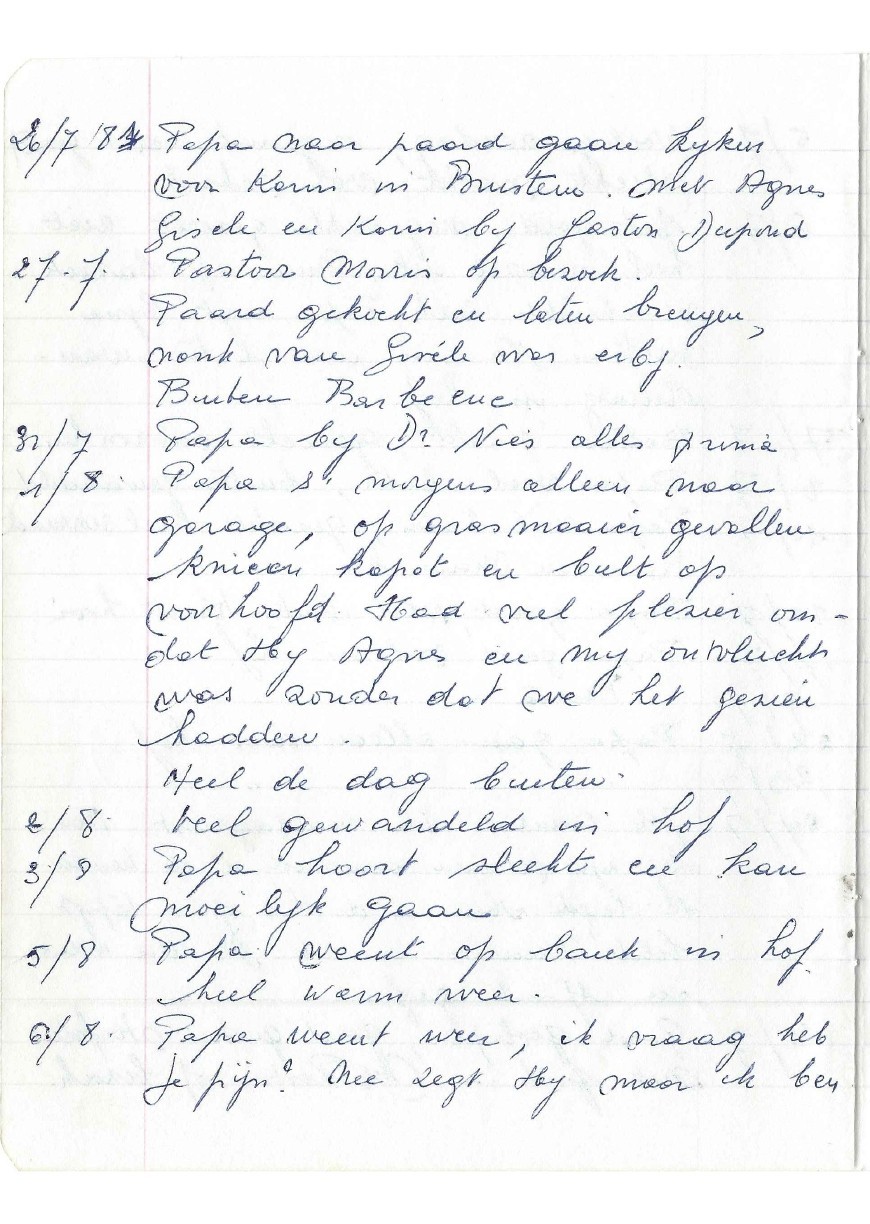 26/7 '84 Papa naar paard gaan kyken
voor Koni in Brustem. met Agnes
Gisele en Koni by Gaston Dupond
27.7. Pastoor Morris op bezoek.
Paard gekocht en laten brengen,
nonk van Giséle was erby.
Buiten Barbecue
31/7 Papa by Dr. Nies alles prima
1/8. Papa s' morgens alleen naar
garage, op grasmaaier gevallen
knieën kapot en bult op
voorhoofd. Had veel plezier om-
dat Hy Agnes en my ontvlucht
was zonder dat we het gezien
hadden.
Heel de dag buiten.
2/8. Veel gewandeld in hof
3/8 Papa hoort slecht en kan
moeilyk gaan
5/8 Papa weent op bank in hof.
heel warm weer.
6/8. Papa weent weer, ik vraag heb
je pijn? Nee zegt Hy maar ik ben